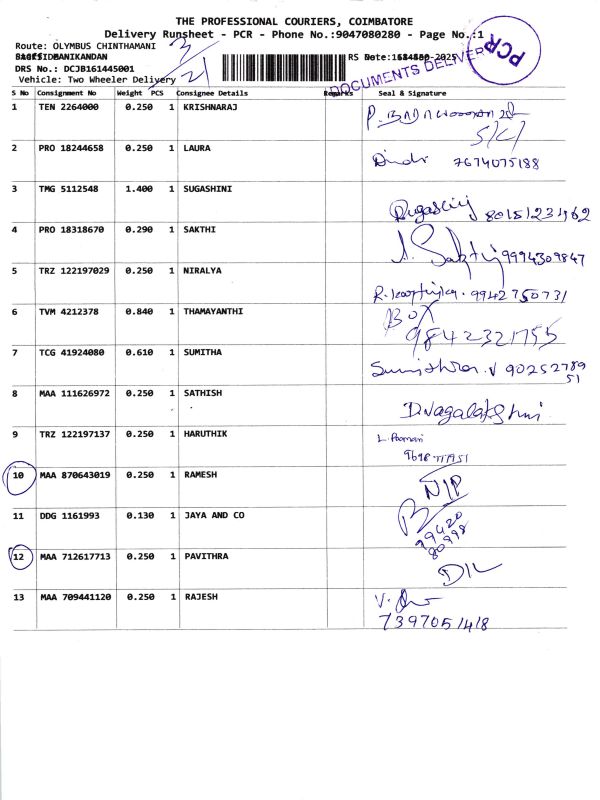 THE PROFESSIONAL COURIERS, COIMBATORE
Delivery Runsheet - PCR - Phone No.:9047080280 - Page No.:1
Route: OLYMBUS CHINTHAMANI
DRS No.: DCJB161445001
Vehicle: Two Wheeler Delivery
DOCUMENTS DELIVER
PCR
S No Consignment No Weight PCS Consignee Details Remarks Seal & Signature
1 TEN 2264000 0.250 1 KRISHNARAJ
2 PRO 18244658 0.250 1 LAURA 7674075188
3 TMG 5112548 1.400 1 SUGASHINI
4 PRO 18318670 0.290 1 SAKTHI A. Sakthi 9994309847
5 TRZ 122197029 0.250 1 NIRALYA 9942750731
6 TVM 4212378 0.840 1 THAMAYANTHI BOX
9842321755
7 TCG 41924080 0.610 1 SUMITHA 90252789
51
8 MAA 111626972 0.250 1 SATHISH D.Nagalakshmi
9 TRZ 122197137 0.250 1 HARUTHIK
10 MAA 870643019 0.250 1 RAMESH N/P
11 DDG 1161993 0.130 1 JAYA AND CO 99420
80998
12 MAA 712617713 0.250 1 PAVITHRA D/L
13 MAA 709441120 0.250 1 RAJESH
7397051418